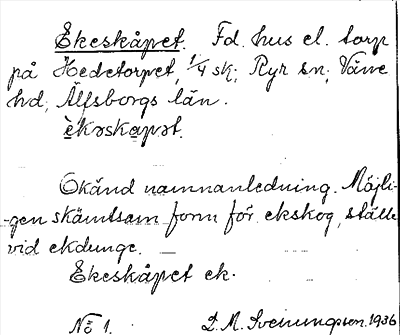 Ekeskåpet. Fd. hus el. torp
på Hedetorpet, 1/4 sk; Ryr sn; Väne
hd, Älfsborgs län.
èkəskapət.
Okänd namnanledning. Möjli-
gen skämtsam form för ekskog, ställe
vid ekdunge.
Ekeskåpet ek.
No 1. D. M. Sveinungsen. 1936